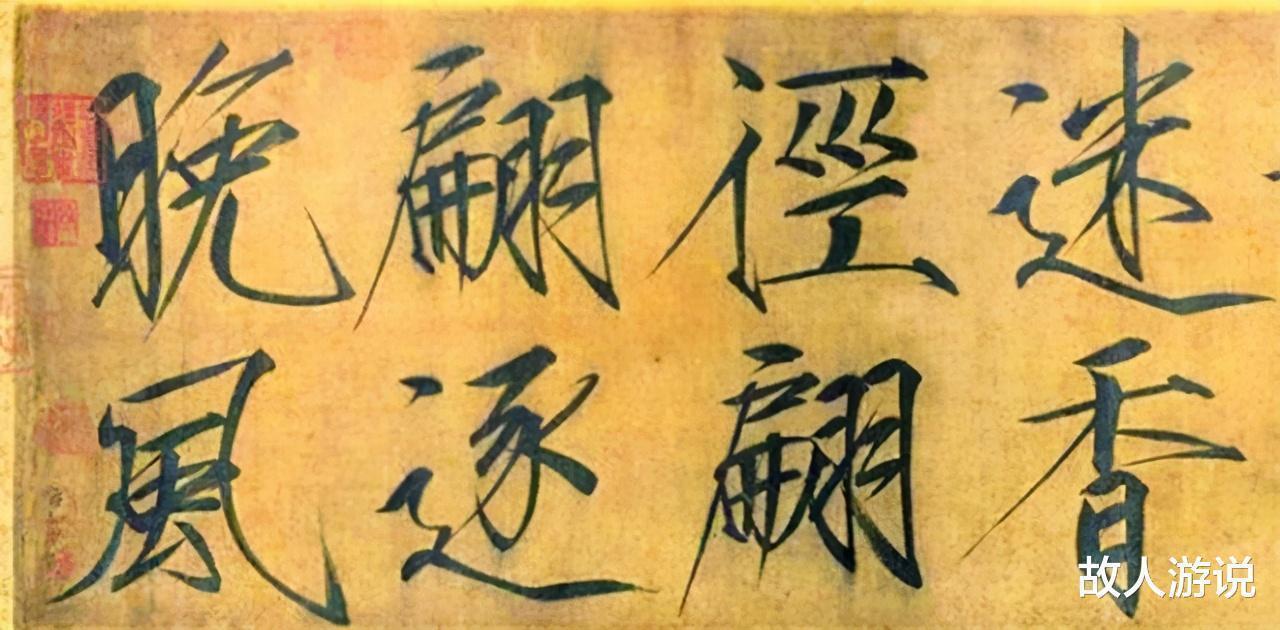 迷香
徑翩
翩逐
晚風
故人游说